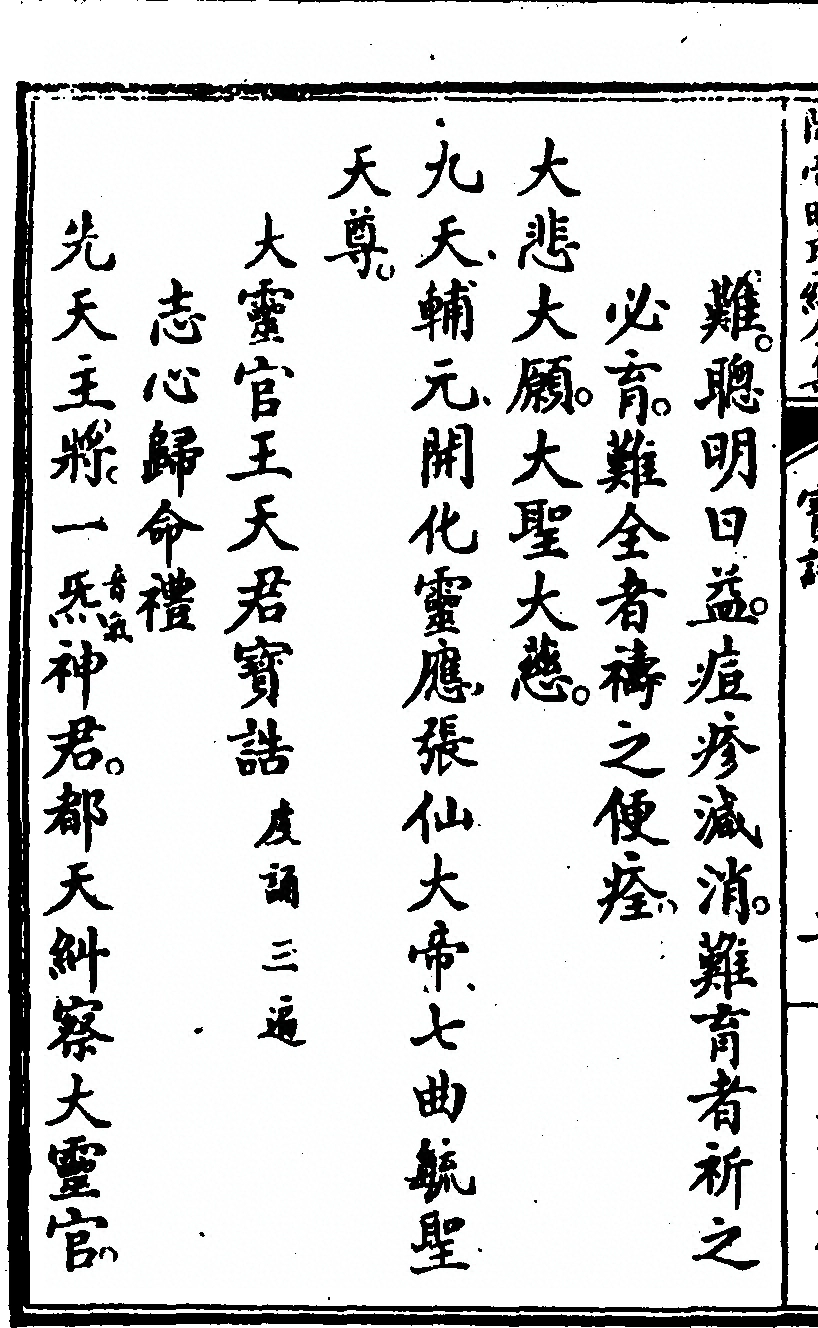 難。聰明日益。痘疹減消。難育者祈之
必育。難全者禱之便痊。
大悲大願。大聖大慈。
九天、輔元、開化靈應、張仙大帝、七曲毓聖
天尊。
大靈官王天君寶誥 虔誦三遍
志心歸命禮
先天主將。一炁音氣神君。都天糾察大靈官。